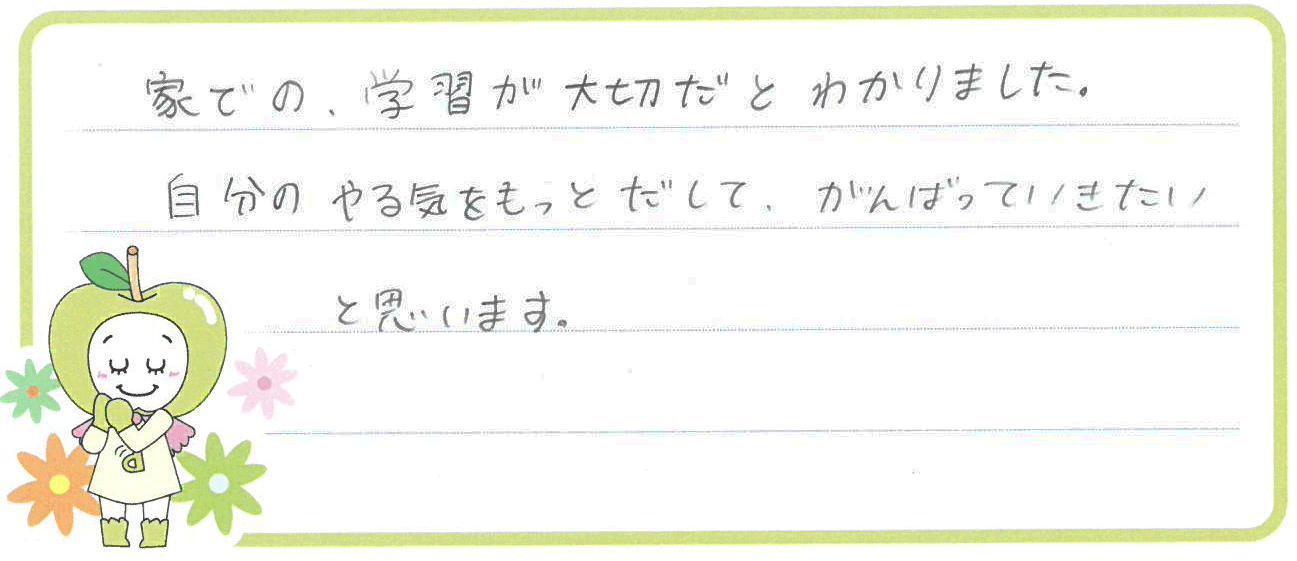 家での、学習が大切だとわかりました。
自分のやる気をもっとだして、がんばっていきたい
と思います。